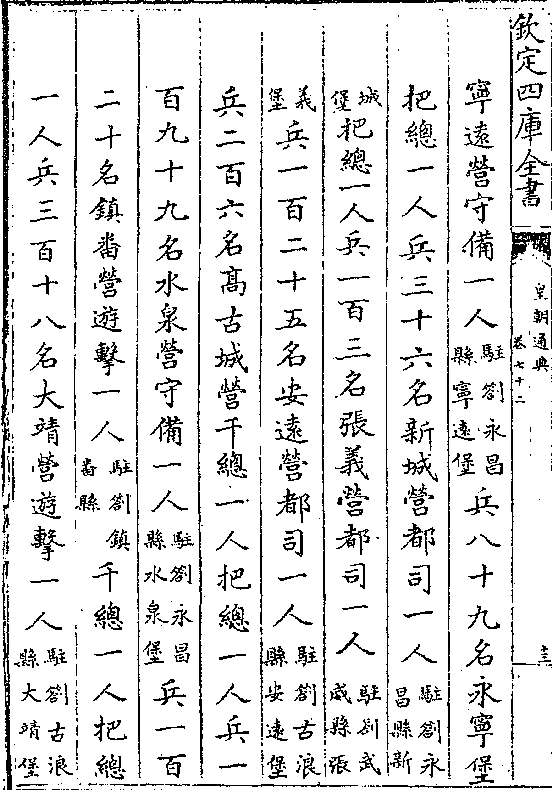 欽定四庫全書
皇朝通典
卷七十二
十三
寧遠營守備一人駐劄永昌縣寧遠堡兵八十九名永寧堡
把總一人兵三十六名新城營都司一人駐劄永昌縣新
城堡把總一人兵一百三名張義營都司一人駐劄武威縣張
義堡兵一百二十五名安遠營都司一人駐劄古浪縣安遠堡
兵二百六名高古城營千總一人把總一人兵一
百九十九名水泉營守備一人駐劄永昌縣水泉堡兵一百
二十名鎮番營遊擊一人駐劄鎮番縣千總一人把總
一人兵三百十八名大靖營遊擊一人駐劄古浪縣大靖堡